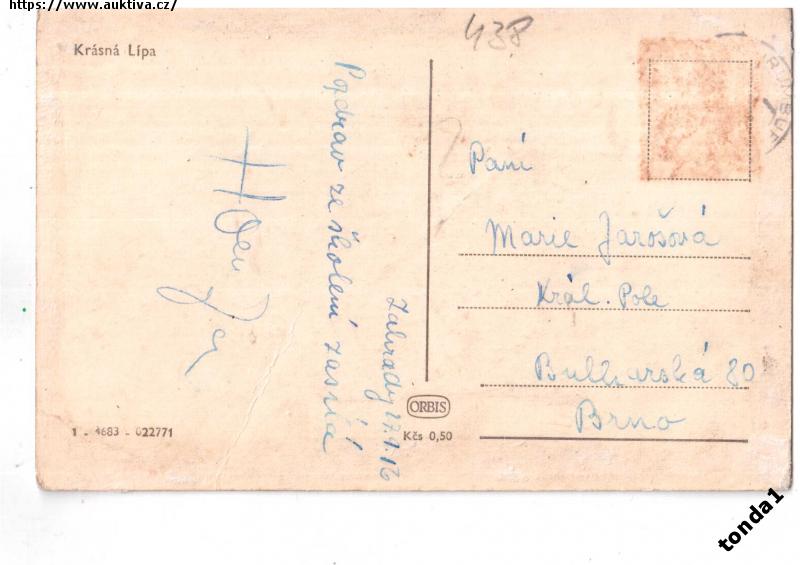 https://www.auktiva.cz/
Krásná Lípa
438
Pozdrav ze školení zasílá
Zahrady
Paní
Marie Jarošová
Král. Pole
Bulharská 80
Brno
ORBIS
Kčs 0,50
1 - 4683 - 022771
tonda1